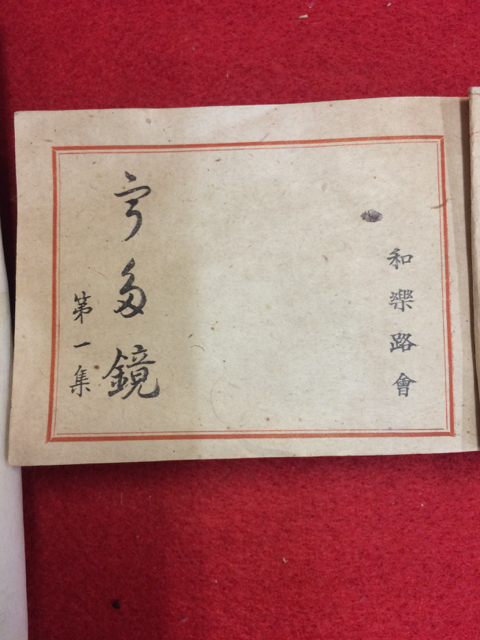 和樂路會
宇多鏡
第一集